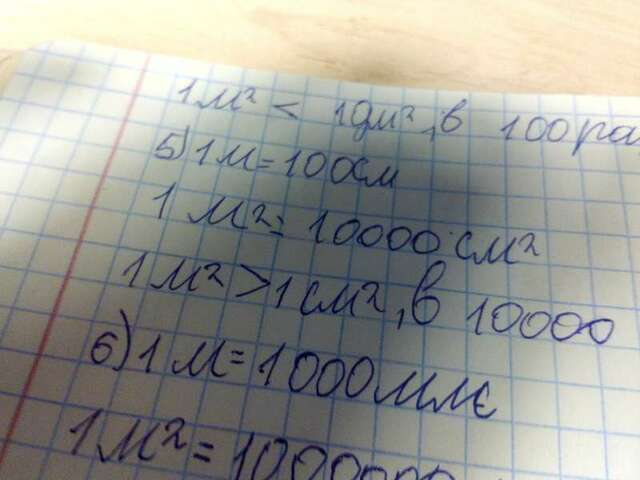 1м² < 1дм², в 100 ра
5) 1м = 100см
1 м² = 10000 см²
1м² > 1см², в 10000
6) 1м = 1000мм
1м² = 1000000